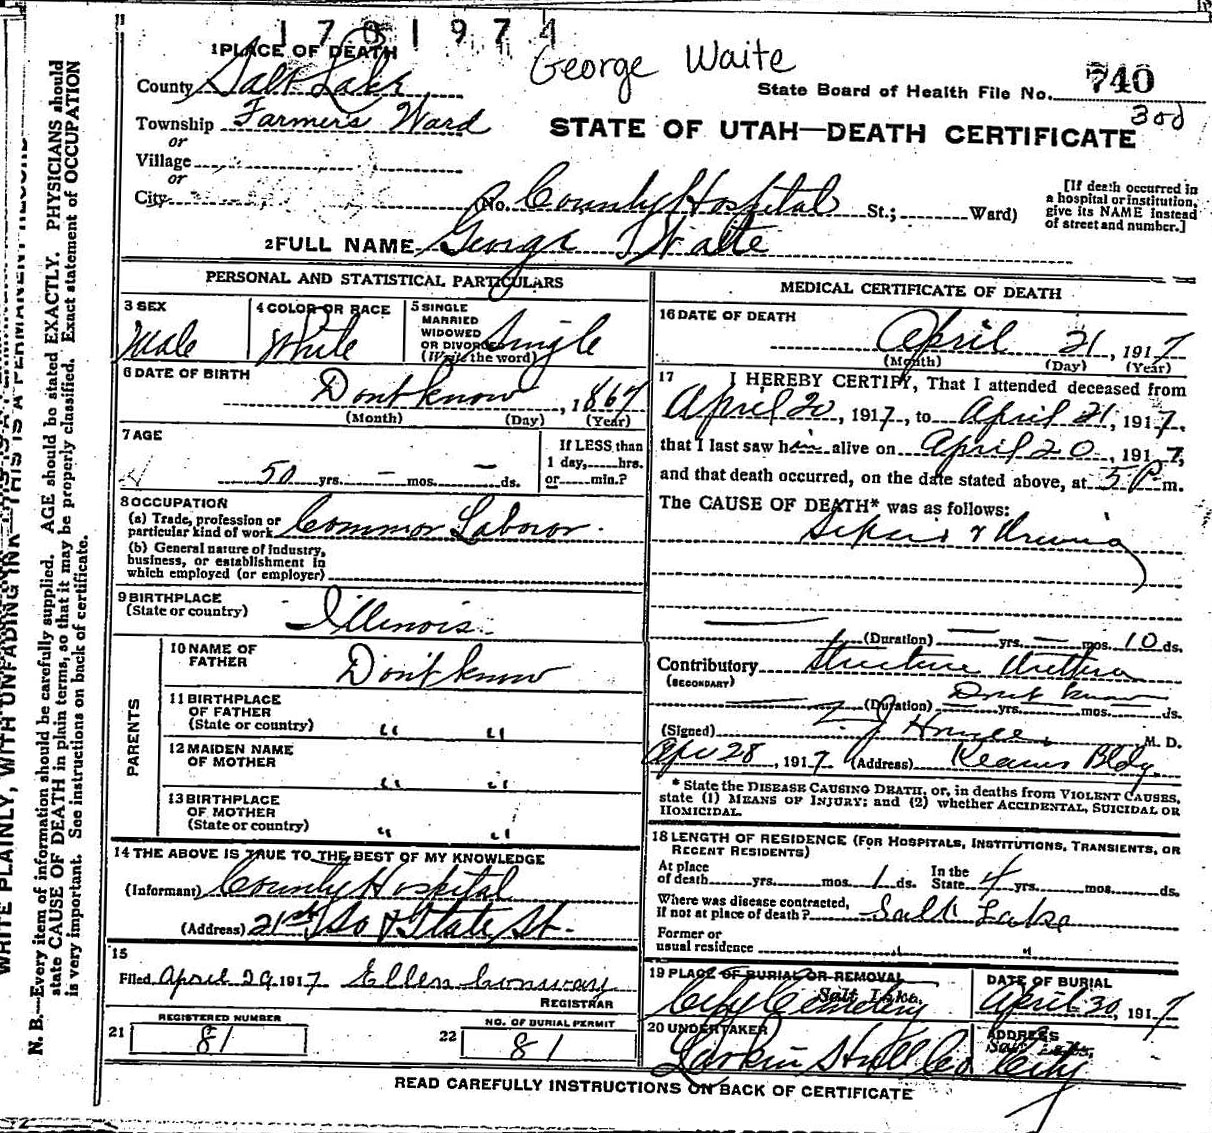 1701974
George Waite
1 PLACE OF DEATH
County Salt Lake
State Board of Health File No. 740
300
Township Farmers Ward
STATE OF UTAH—DEATH CERTIFICATE
or
Village
or
City
(No. County Hospital St.; Ward)
[If death occurred in
a hospital or institution,
give its NAME instead
of street and number.]
2 FULL NAME George Waite
PERSONAL AND STATISTICAL PARTICULARS
3 SEX
Male
4 COLOR OR RACE
White
5 SINGLE
MARRIED
WIDOWED
OR DIVORCED
(Write the word)
Single
6 DATE OF BIRTH
Dont know, 1867
(Month) (Day) (Year)
7 AGE
50 yrs. — mos. — ds.
If LESS than
1 day, hrs.
or min.?
8 OCCUPATION
(a) Trade, profession or
particular kind of work Common Labor
(b) General nature of Industry,
business, or establishment in
which employed (or employer)
9 BIRTHPLACE
(State or country) Illinois
PARENTS
10 NAME OF
FATHER Don't know
11 BIRTHPLACE
OF FATHER
(State or country) " "
12 MAIDEN NAME
OF MOTHER " "
13 BIRTHPLACE
OF MOTHER
(State or country) " "
14 THE ABOVE IS TRUE TO THE BEST OF MY KNOWLEDGE
(Informant) County Hospital
(Address) 21st So & State St.
15
Filed April 29 1917 Ellen Conway
REGISTRAR
21 REGISTERED NUMBER
81
22 NO. OF BURIAL PERMIT
81
MEDICAL CERTIFICATE OF DEATH
16 DATE OF DEATH
April 21, 1917
(Month) (Day) (Year)
17 I HEREBY CERTIFY, That I attended deceased from
April 20, 1917, to April 21, 1917.
that I last saw him alive on April 20, 1917,
and that death occurred, on the date stated above, at 5 P m.
The CAUSE OF DEATH* was as follows:
Sepsis & Uremia
(Duration) — yrs. — mos. 10 ds.
Contributory Stricture Urethra
(SECONDARY)
Dont know
(Duration) yrs. mos. ds.
(Signed) M. D.
Apr 28, 1917 (Address) Kearns Bldg.
* State the DISEASE CAUSING DEATH, or, in deaths from VIOLENT CAUSES,
state (1) MEANS OF INJURY; and (2) whether ACCIDENTAL, SUICIDAL OR
HOMICIDAL.
18 LENGTH OF RESIDENCE (FOR HOSPITALS, INSTITUTIONS, TRANSIENTS, OR
RECENT RESIDENTS)
At place
of death yrs. mos. 1 ds. In the
State 4 yrs. mos. ds.
Where was disease contracted,
If not at place of death? Salt Lake
Former or
usual residence " "
19 PLACE OF BURIAL OR REMOVAL
Salt Lake
City Cemetery
DATE OF BURIAL
April 30, 1917
20 UNDERTAKER
Larkin Hull Co
ADDRESS
Salt Lake
City
READ CAREFULLY INSTRUCTIONS ON BACK OF CERTIFICATE
WRITE PLAINLY, WITH UNFADING INK—THIS IS A PERMANENT RECORD
N. B.—Every item of information should be carefully supplied. AGE should be stated EXACTLY. PHYSICIANS should
state CAUSE OF DEATH in plain terms, so that it may be properly classified. Exact statement of OCCUPATION
is very important. See instructions on back of certificate.